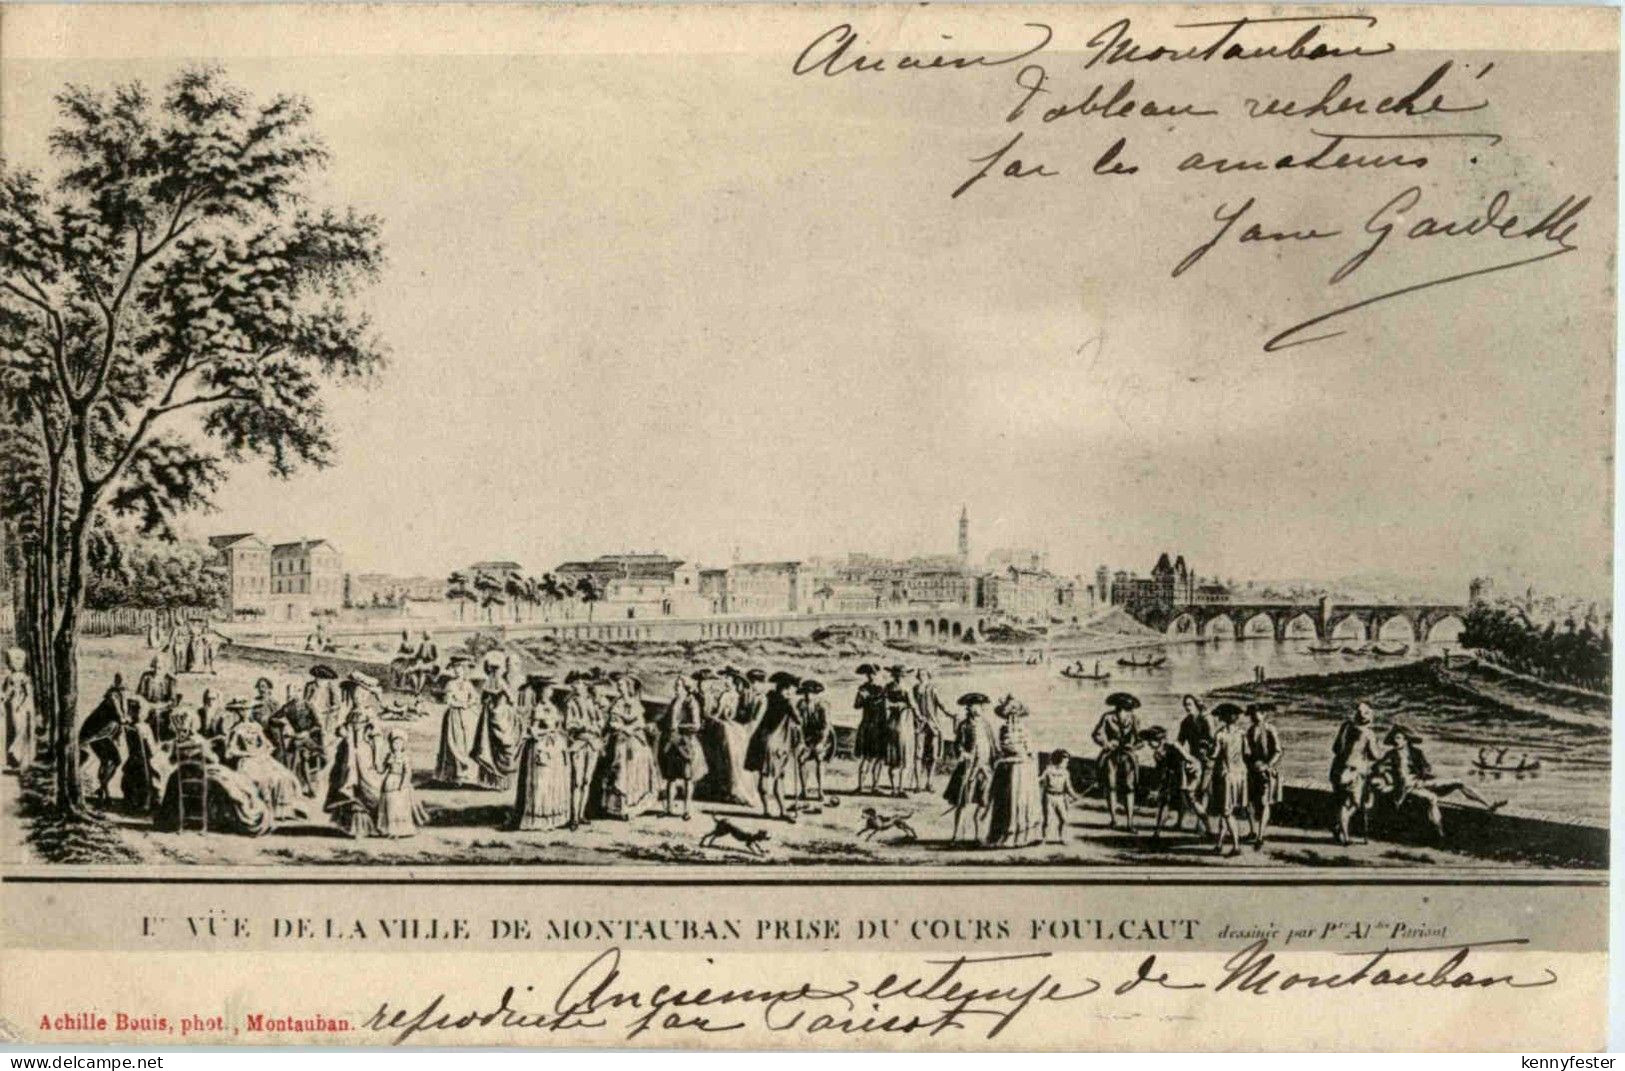 Ancien Montauban
Tableau recherché
par les amateurs.
Jane Gardelle
Ire VÜE DE LA VILLE DE MONTAUBAN PRISE DU COURS FOULCAUT dessinée par Pre Aldre Parisot
Ancienne estampe de Montauban
Achille Bouis, phot., Montauban. reproduite par Parisot
delcampe.net
kennyfester